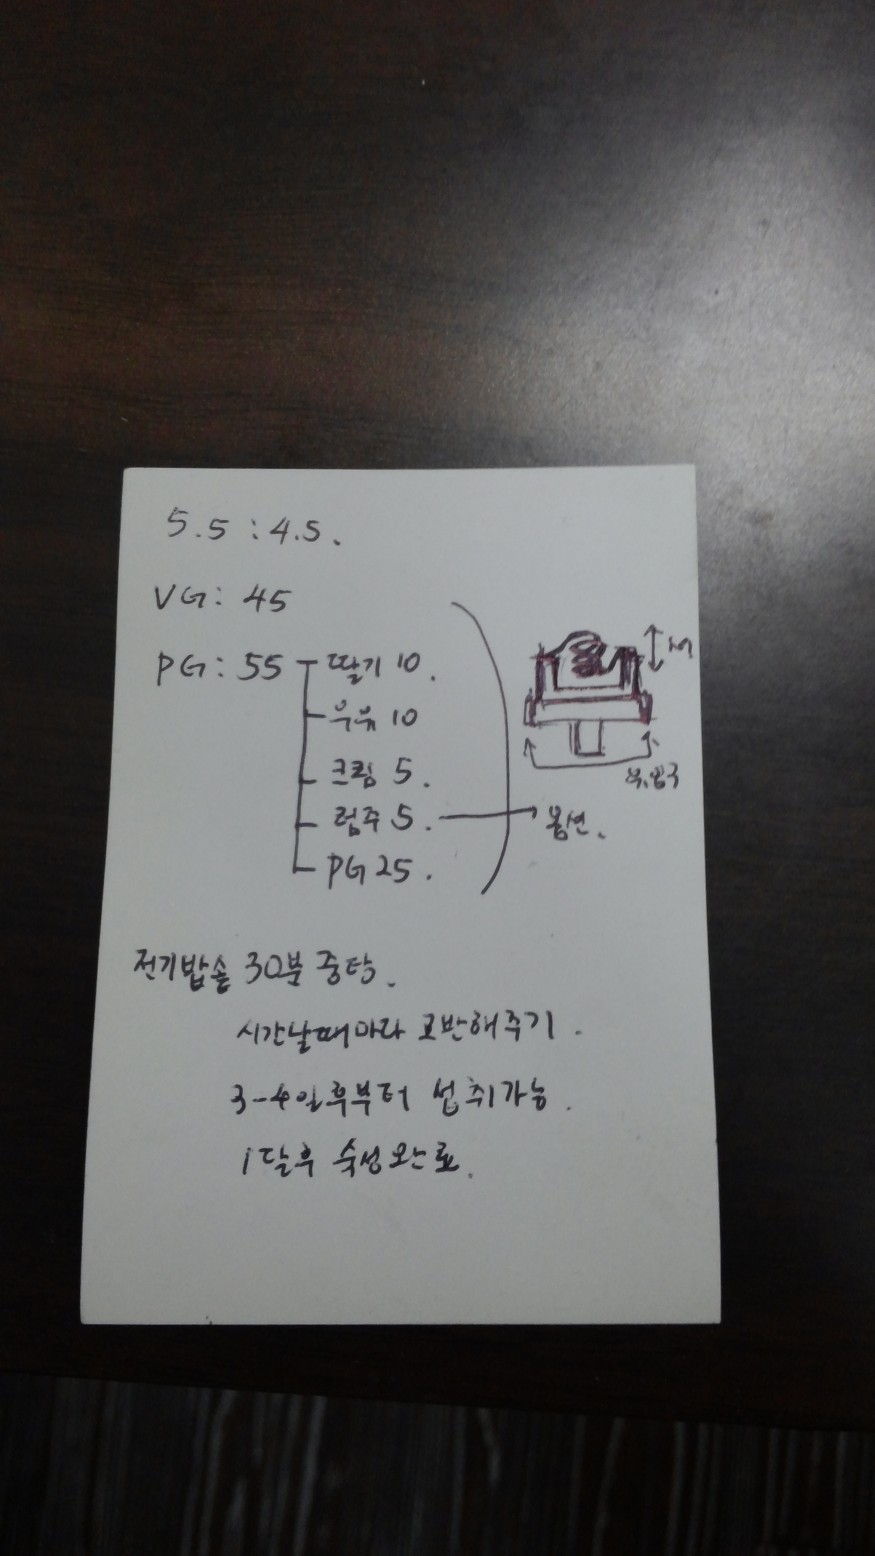 5.5 : 4.5.
VG: 45
PG: 55 딸기 10.
우유 10
크림 5.
럼주 5. → 옵션.
PG 25.
전기밥솥 30분 중탕.
시간날때마다 교반해주기.
3-4일후부터 섭취가능.
1달후 숙성완료.